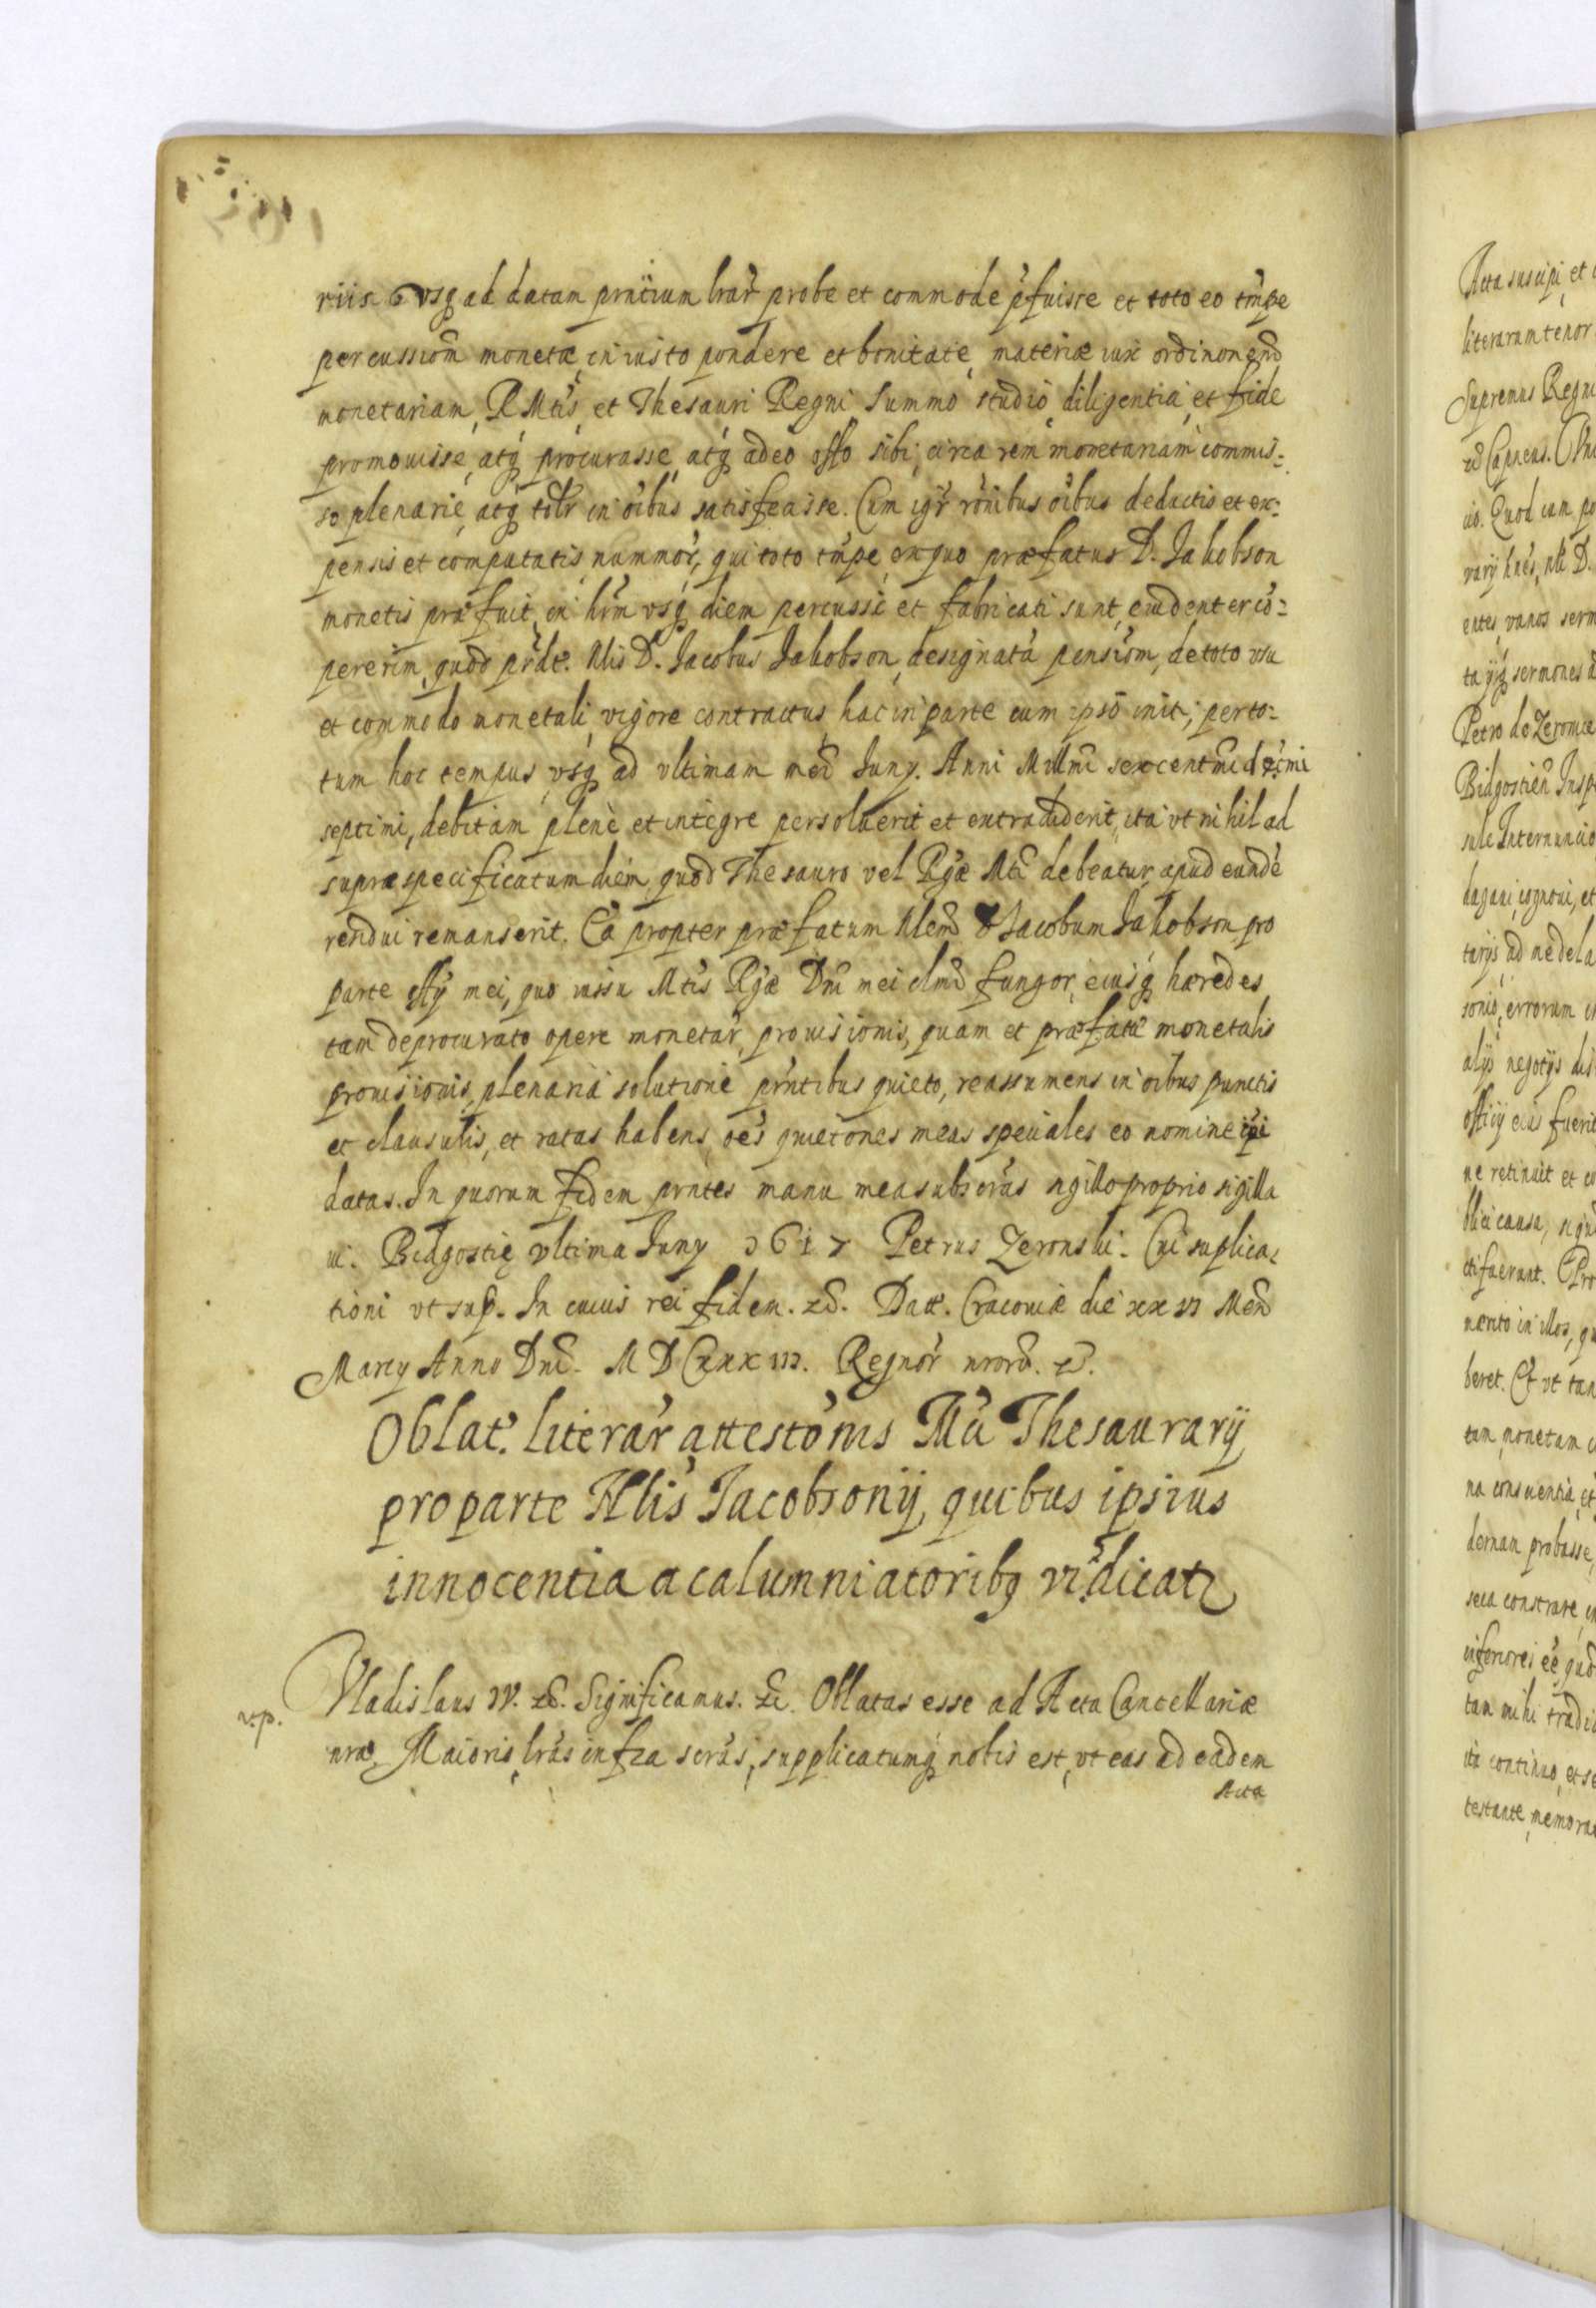 riis usq ad datam prntium lrar probe et commode pfuisse et toto eo tmpe
percussiom monetæ in iusto pondere et bonitate materiæ iux ordinonem
monetariam, R Mtis et Thesauri Regni summo studio diligentia et fide
promouisse atq procurasse atq adeo offo sibi circa rem monetariam commis-
so plenarie atq tolr in oibus satisfecisse. Cum igr ronibus oibus deductis et ex-
pensis et computatis nummor, qui toto tmpe ex quo præfatus D. Jakobson
monetis præfuit in hrm usq diem percussi et fabricati sunt, euidenter co-
pererim, quod prdt. Nlis D. Jacobus Jakobson designata pensiom, de toto vsu
et commodo monetali vigore contractus hac in parte cum ipso init, per to-
tum hoc tempus vsq ad vltimam men Juny. Anni Millmi sexcentmi decimi
septimi, debitam plene et integre persoluerit et extradiderit, ita vt nihil ad
supra specificatum diem quod Thesauro vel Rgæ Mti debeatur apud eunde
residui remanserit. Ea propter præfatum Nlem Jacobum Jakobson pro
parte offy mei, quo iussu Mtis Rgæ Dni mei clmi fungor, eiusq hæredes
tam de procurato opere monetar, prouisionis, quam et præfatæ monetalis
prouisionis, plenaria solutione prntibus quieto, reassumens in oibus punctis
et clausulis, et ratas habens oes quietones meas speciales eo nomine ipi
datas. In quorum fidem prntes manu mea subscras sigillo proprio sigilla
ui. Bidgostię vltima Juny 1617 Petrus Zeronski. Cui suplica-
tioni vt sup. In cuius rei fidem. etc. Datt. Cracouiæ die xx VI Men
Marcy Anno Dni. M D C xxx III. Regnor nrorũ. etc.
Oblat. literar attestonis Mci Thesaurarij
pro parte Nlis Jacobsonij, quibus ipsius
innocentia a calumniatoribq vidicat
Vladislaus IV. etc. Significamus. etc. Oblatas esse ad Acta Cancellariæ
v.p.
nræ Maioris lras infra scras, supplicatumq nobis est, vt eas ad eadem
Acta
Acta suscipi et
literarum tenor
Supremus Regni
etc Capneus.
cio. Quod cum
entes, vanos serm
sermones
Petro de Zeronice
Bidgostien Insp
sule Internuncio
cognoui, et
tarijs, ad ne dela
sonio, errorum
alijs negotijs dis
officij eius fuerit
ne retinuit et
blici causa,
cti fuerunt. Pro
merito in illos,
beret. Et vt tan
tam, monetam
na consuentia, et
dernam probasse,
seca constrare,
inferiori eẽ quod
tam mihi tradi
ita continuo, et se
testante memora